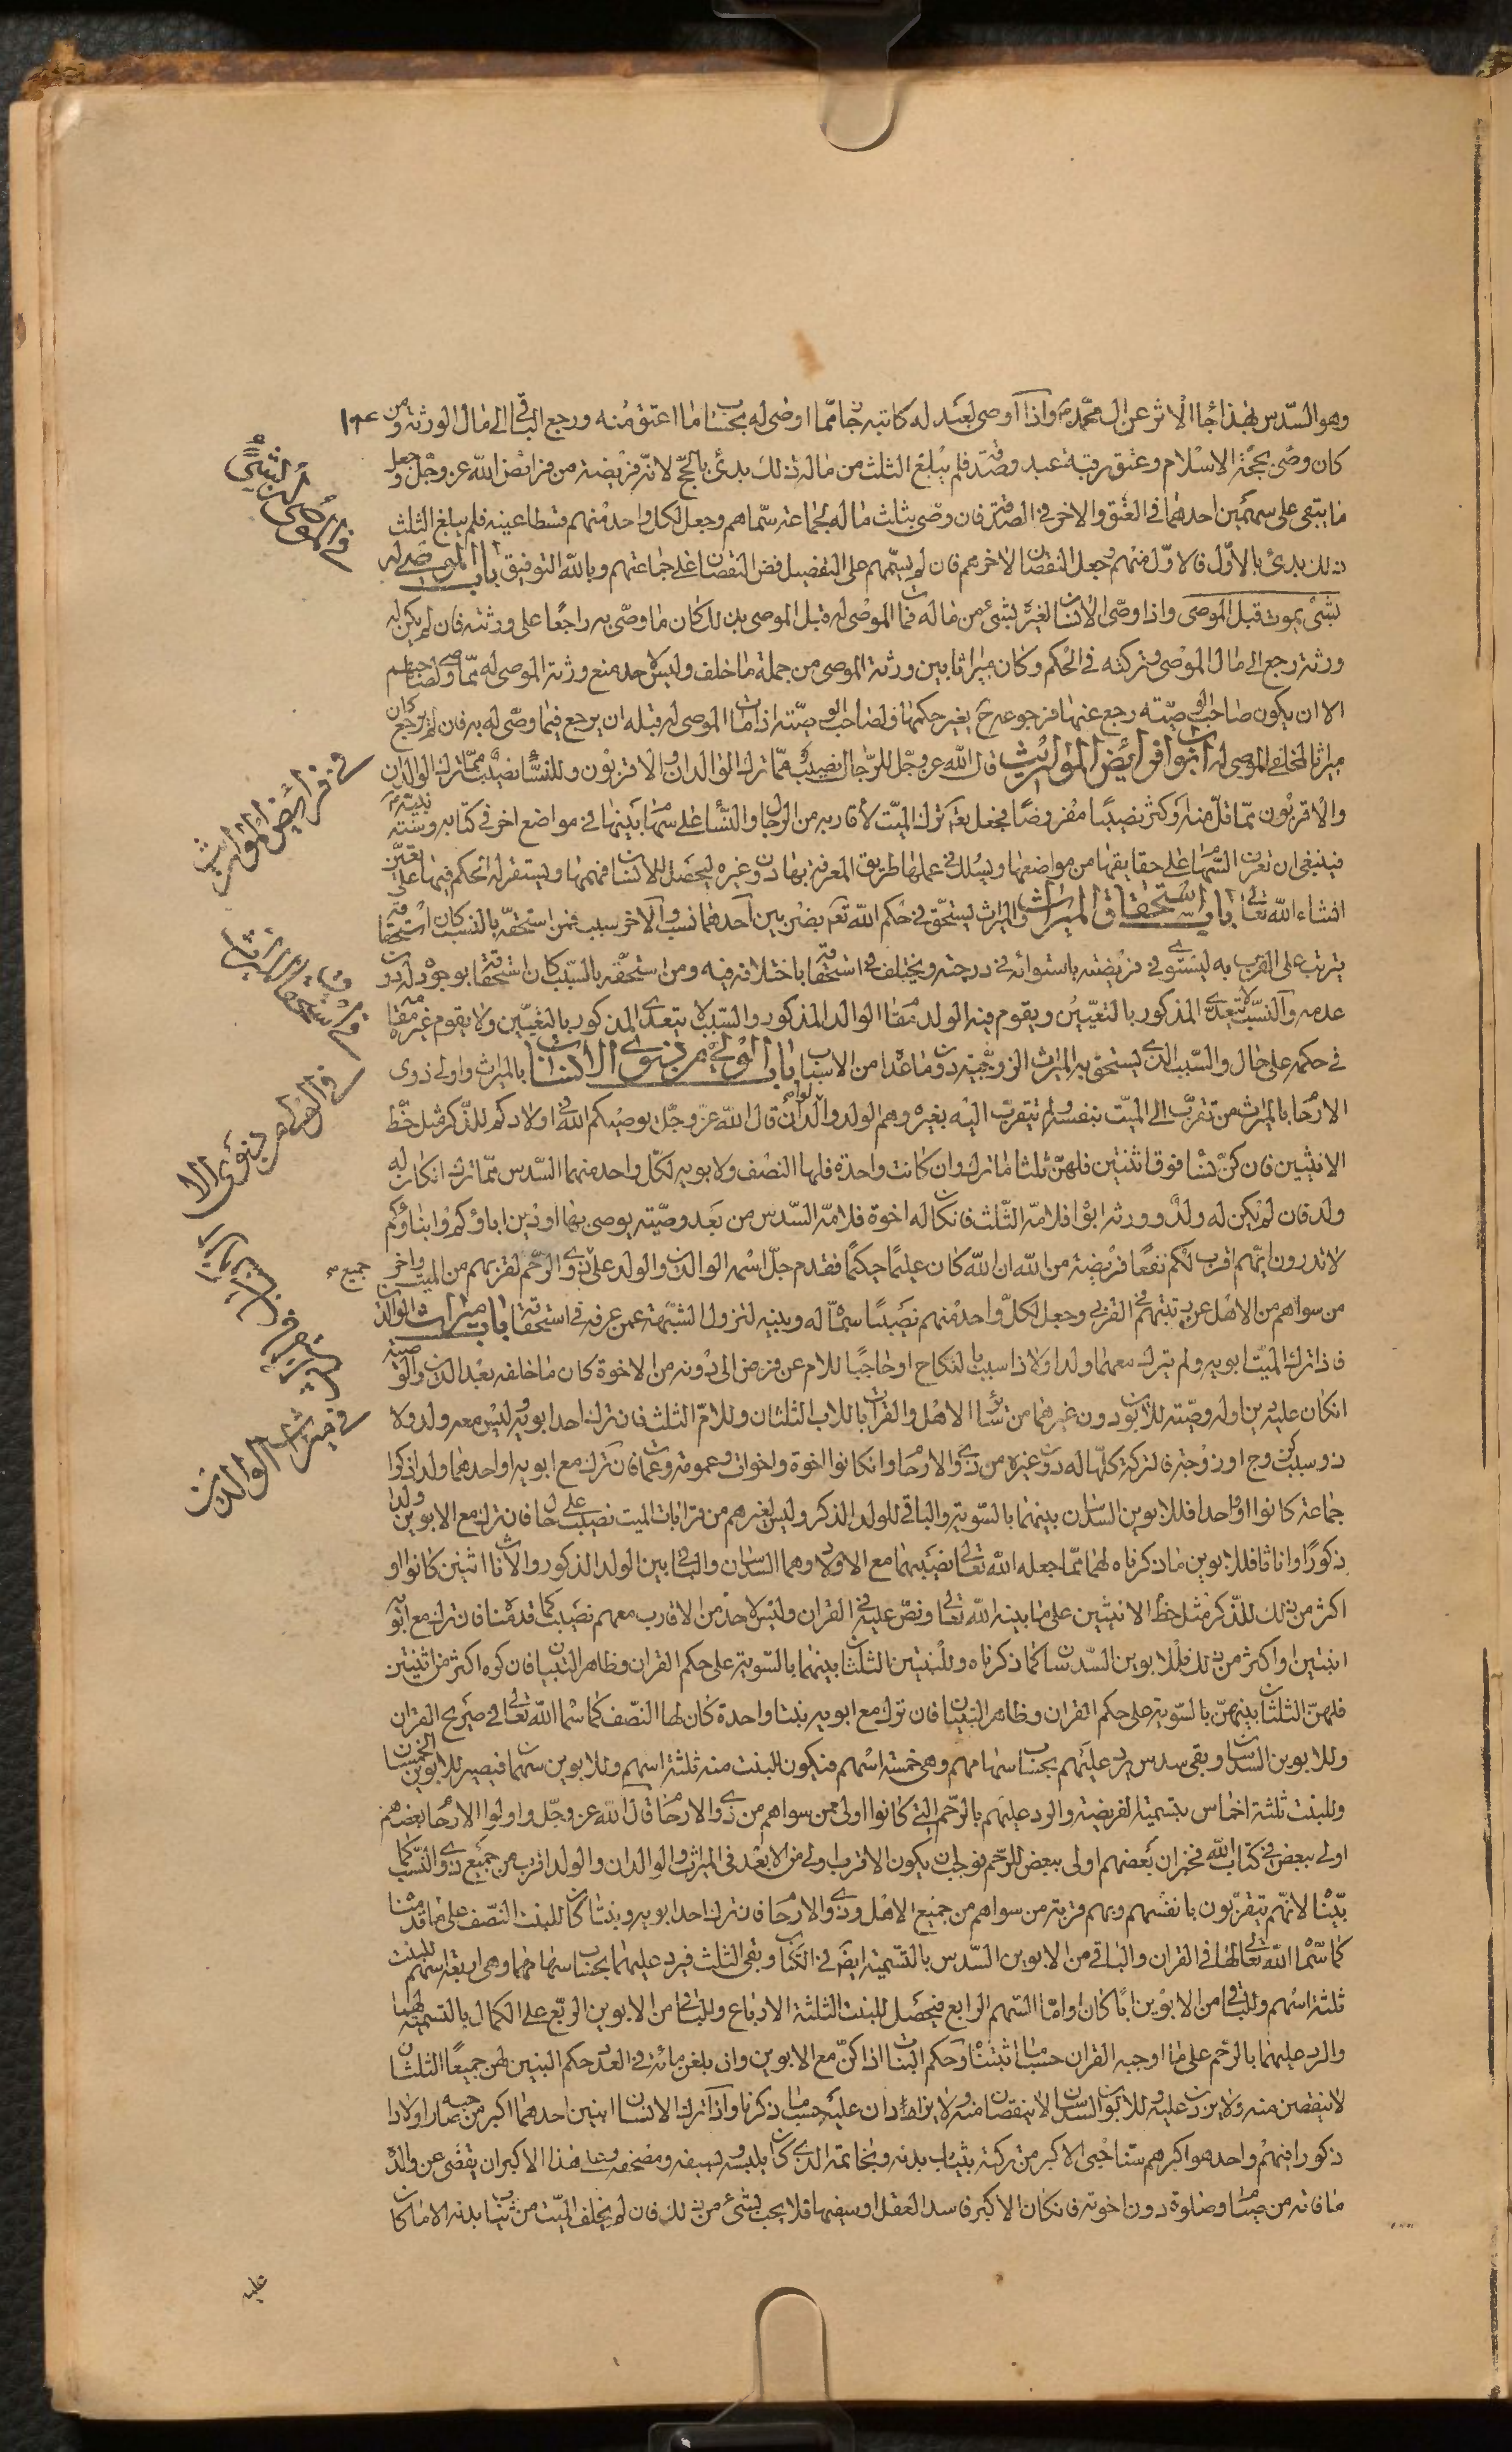 وهو السّدس بهذا جاء الاثر عن ال محمّد ع واذا اوصى لعبد له كاتبه جاز ممّا اوصى له بحساب ما اعتق منه ورجع الباقى الى مال الورثة ومن
كان وصّى بحجّة الاسلام وعتق رقبة عبد وصدقة فلم يبلغ الثلث من ماله ذلك بدئ بالحجّ لانّه فريضة من فرائض الله عز وجل وجعل
ما يبقى على سهمين احدهما في العتق والاخر في الصدقة فان وصّى بثلث ماله لجماعة سمّاهم وجعل لكلّ واحد منهم قسطا عينه فلم يبلغ الثلث
ذلك بدئ بالاوّل فالاوّل منهم وجعل النقصان لاخرهم فان لم يسمّهم على التفصيل فض النقصان على جماعتهم وبالله التوفيق باب الموصى له
بشئ يموت قبل الموصى واذا وصّى الانسان لغيره بشئ من ماله فمات الموصى له قبل الموصى بذلك كان ما وصّى به راجعًا على ورثته فان لم يكن له
ورثة رجع الى مال الموصى وتركته في الحكم وكان ميراثا بين ورثة الموصى من جملة ما خلف وليس لاحد منع ورثة الموصى له ممّا وصّى لصاحبهم
الا ان يكون صاحب الوصيّة رجع عنها فرجوعه ح يغير حكمها ولصاحب الوصيّة اذا مات الموصى له قبله ان يرجع فيما وصّى له به فان لم يرجع كان
ميراثا لمخلفى الموصى له ابواب فرائض المواريث قال الله عز وجل للرّجال نصيب ممّا ترك الوالدان والاقربون وللنّساء نصيب ممّا ترك الوالدان
والاقربون ممّا قلّ منه او كثر نصيبًا مفروضًا فجعل تعالى تركة الميّت لاقاربه من الرجال والنّساء على سهام بينها في مواضع اخر في كتابه وسنّة نبيّه
فينبغى ان تعرف السّهام على حقايقها من مواضعها ويسلك في عملها طريق المعرفة بها دون غيره ليحصل للانسان فهمها ويستقر له الحكم فيها على يقين
انشاء الله تعالى باب استحقاق الميراث والميراث يستحقّ في حكم الله تعالى بضربين احدهما نسب والاخر سبب فمن استحقّه بالنّسب كان استحقاقه
يترتب على القرب به ليستوى في فريضته باستوائه في درجته ويختلف في استحقاقه باختلافه فيه ومن استحقّه بالسّبب كان استحقاقه بوجوده له دون
عدمه والنّسب لا يتعدى المذكور بالتعيين ويقوم فيه الولد مقام الوالد المذكور والسّبب لا يتعدى المذكور بالتعيّين ولا يقوم غيره مقامه
في حكمه على حال والسّبب الذى يستحق به الميراث الزوجيّة دون ما عدا من الاسباب باب الولى من ذوى الانساب بالميراث واولى ذوى
الارحام بالميراث من تقرّب الى الميّت بنفسه ولم يتقرب اليه بغيره وهم الولد والوالدان قال الله عزّ وجلّ يوصيكم الله في اولادكم للذّكر مثل حظّ
الانثيين فان كنّ نساء فوق اثنتين فلهنّ ثلثا ما ترك وان كانت واحدة فلها النصف ولابويه لكلّ واحد منهما السّدس ممّا ترك ان كان له
ولد فان لم يكن له ولد وورثه ابواه فلامّه الثّلث فان كان له اخوة فلامّه السّدس من بعد وصيّة يوصى بها او دين اباؤكم وابناؤكم
لا تدرون ايّهم اقرب لكم نفعًا فريضة من الله ان الله كان عليمًا حكيمًا فقدم جلّ اسمه الوالدين والولد على ذوى الرّحم لقربهم من الميّت واخر جميع
من سواهم من الاهل عن رتبتهم في القربى وجعل لكلّ واحد منهم نصيبًا سمّاه له وبينه لتزول الشبهة عمن عرفه في استحقاقه باب ميراث الوالدين
فاذا ترك الميّت ابويه ولم يترك معهما ولدا ولا ذا سبب بالنكاح او حاجبًا للام عن فرضها الى دونه من الاخوة كان ما خلفه بعد الدين والوصيّة
ان كان عليه دين او له وصيّة للابوين دون غيرهما من سائر الاهل والقرابات للاب الثلثان وللامّ الثلث فان ترك احد ابويه ليس معه ولد ولا
ذو سبب كزوج او زوجة فالتركة كلّها له دون غيره من ذوى الارحام وان كانوا اخوة واخوات وعمومة وعمات فان ترك مع ابويه او احدهما ولدا ذكرا
جماعة كانوا او واحدا فللابوين السدسان بينهما بالسّوية والباقى للولد الذكر وليس لغيرهم من قرابات الميت نصيب على حال فان ترك مع الابوين ولدا
ذكورًا واناثا فللابوين ما ذكرناه لهما ممّا جعله الله تعالى نصيبهما مع الاولاد وهما السدسان والباقى بين الولد الذكور والاناث اثنين كانوا او
اكثر من ذلك للذّكر مثل حظّ الانثيين على ما بينه الله تعالى ونصّ عليه في القران وليس لاحد من الاقارب معهم نصيب كما قدمناه فان ترك مع ابويه
ابنتين او اكثر من ذلك فللابوين السّدسان كما ذكرناه وللبنتين الثلثان بينهما بالسّوية على حكم القران وظاهر التبيان فان كنّ اكثر من اثنتين
فلهنّ الثلثان بينهنّ بالسّوية على حكم القران وظاهر التبيان فان ترك مع ابويه بنتا واحدة كان لها النصّف كما سماه الله تعالى في صريح القران
وللابوين السدسان وبقى سدس يرد عليهم بحساب سهامهم وهى خمسة اسهم فيكون للبنت منه ثلثة اسهم وللابوين سهمان فيصير للابوين الخمسان
وللبنت ثلثة اخماس بتسمية الفريضة والرد عليهم بالرّحم التى كانوا اولى ممن سواهم من ذوى الارحام قال الله عز وجلّ واولوا الارحام بعضهم
اولى ببعض في كتاب الله فخبر ان بعضهم اولى ببعض للرّحم فوجب ان يكون الاقرب اولى من الابعد في الميراث والوالدان والولد اقرب من جميع ذوى النّسب كما
بيّنّا لانّهم يتقرّبون بانفسهم وبهم قربة من سواهم من جميع الاهل وذوى الارحام فان ترك احد ابويه وبنتا كان للبنت النّصف على ما قدمناه
كما سمّاه الله تعالى لها في القران والباقى من الابوين السّدس بالتّسمية ايضا في الكتاب وبقى الثلث فيرد عليهما بحساب سهامهما وهى اربعة اسهم للبنت
ثلثة اسهم وللباقى من الابوين ابًا كان او امّا السّهم الرابع فيحصل للبنت الثلثة الارباع وللباقى من الابوين الربع على الكمال بالتسمية لهما
والرد عليهما بالرحم على ما اوجبه القران حسب ما اثبتناه وحكم البنات اذا كنّ مع الابوين وان بلغن مائة في العدد حكم البنتين لهن جميعًا الثلثان
لا ينقصن منه ولا يزدن عليه وللابوين السدسان لا ينقصان منه ولا يزادان عليه حسب ما ذكرناه واذا ترك الانسان ابنين احدهما اكبر من صاحبه او اولادا
ذكورا فيهم واحد هو اكبرهم سنا حبى الاكبر من تركته بثياب بدنه وبخاتمه الذى كان يلبسه وبسيفه ومصحفه وعلى هذا الاكبر ان يقضى عن والده
ما فاته من صيام وصلوة دون اخوته فان كان الاكبر فاسد العقل او سفيها فلا يحب بشئ من ذلك فان لم يخلف الميّت من ثياب بدنه الا ما كان
في الموصى له بشئ
في فرائض المواريث
في استحقاق الميراث
في ميراث الوالدين
عليه